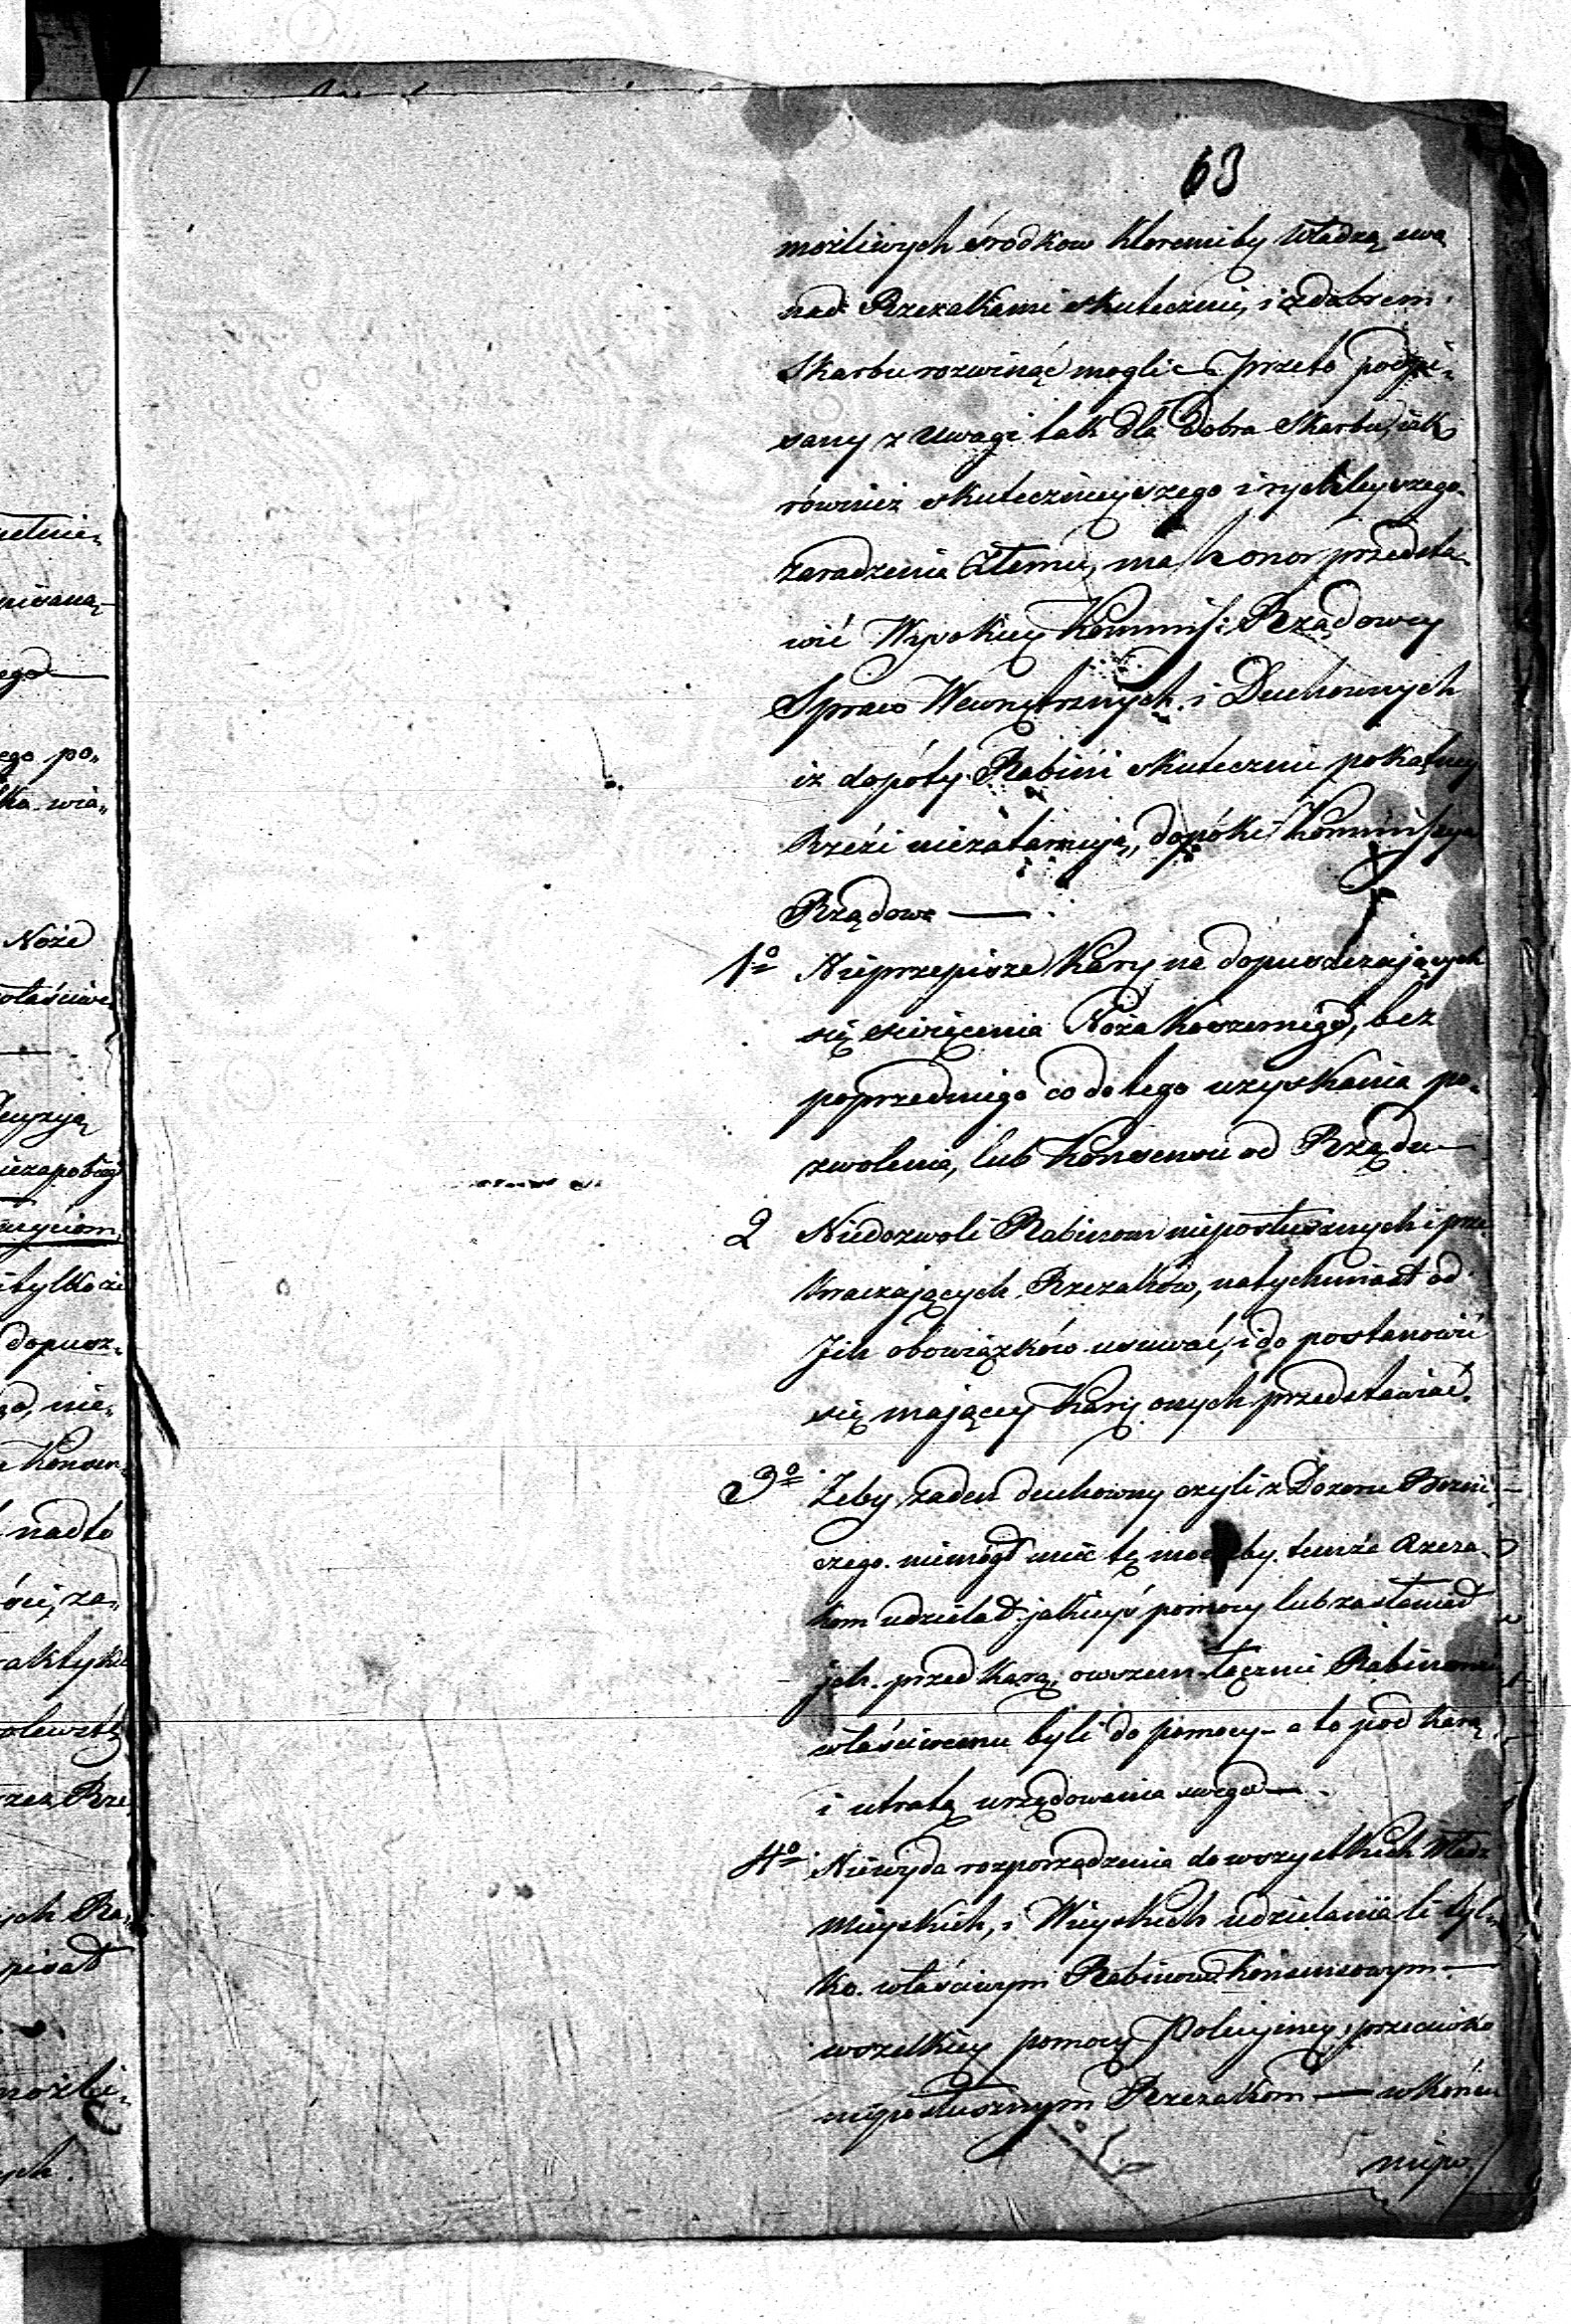 63
możliwych środkow któremiby władzą swą
nad Rzezakami skutecznie, i z dobrem
Skarbu rozwinąć mogli — przeto podpi„
sany z uwagi tak dla dobra Skarbu, jak
również skuteczniejszego i rychleyszego
zaradzenia złemu, ma honor przedsta„
wić Wysokiey Kommissi Rządowey
Spraw Wewnętrznych i Duchownych
iż dopóty Rabini skutecznie pokątney
Rzezi niezatamują, dopóki Kommissya
Rządowa —
1o Nieprzepisze Kary na dopuszczających
się święcenia Noża Koszernego, bez
poprzedniego co do tego uzyskania po„
zwolenia, lub Konsensu od Rządu —
2 Niedozwoli Rabinom nieposłusznych i prze
kraczających Rzezaków, natychmiast od
Jch obowiązków usuwać, i do postanowić
się maiącey Kary onych przedstawiać.
3o Żeby żaden duchowny czyli z Dozoru Bożni„
czego niemógł mieć tę moc by tymże Rzeza„
kom udzielał jakieyś pomocy lub zasłaniał
jch przed karą, owszem łącznie Rabinowi
właściwemu byli do pomocy — a to pod karą
i utratą urzędowania swego —
4o Niewyda rozporządzenia do wszystkich Władz
Mieyskich, i Wieyskich udzielania li tyl„
ko właściwym Rabinom Konsensowym —
wszelkiey pomocy Policyiney, przeciwko
nieposłusznym Rzezakom — w końcu
niepo„
etnie„
pisaną
ego —
ego po„
ka wia„
Noże
właściwe
niezapobieg
życiom,
i tylko że
dopusz„
nie„
Konsen„
nadto
ści, za„
raktyki
rzez Rze
ych Ra„
pisał
możli„
ych.